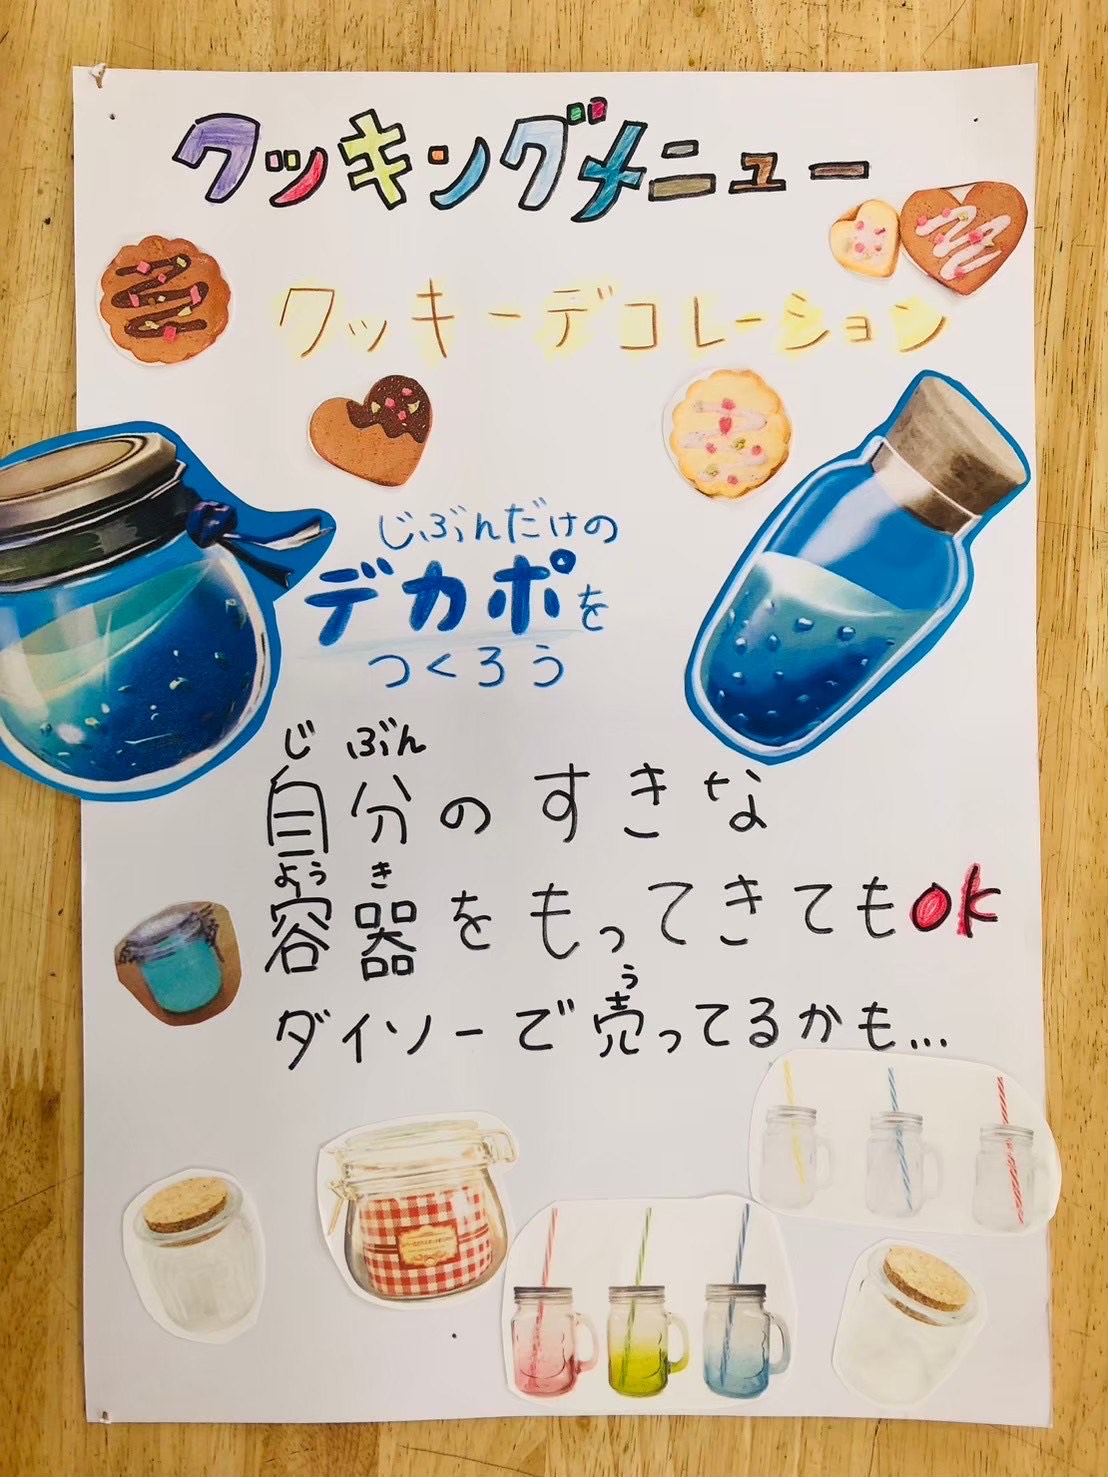 クッキングメニュー
クッキーデコレーション
じぶんだけの
デカポを
つくろう
じ ぶん
自分のすきな
よう き
容器をもってきてもOK
う
ダイソーで売ってるかも...